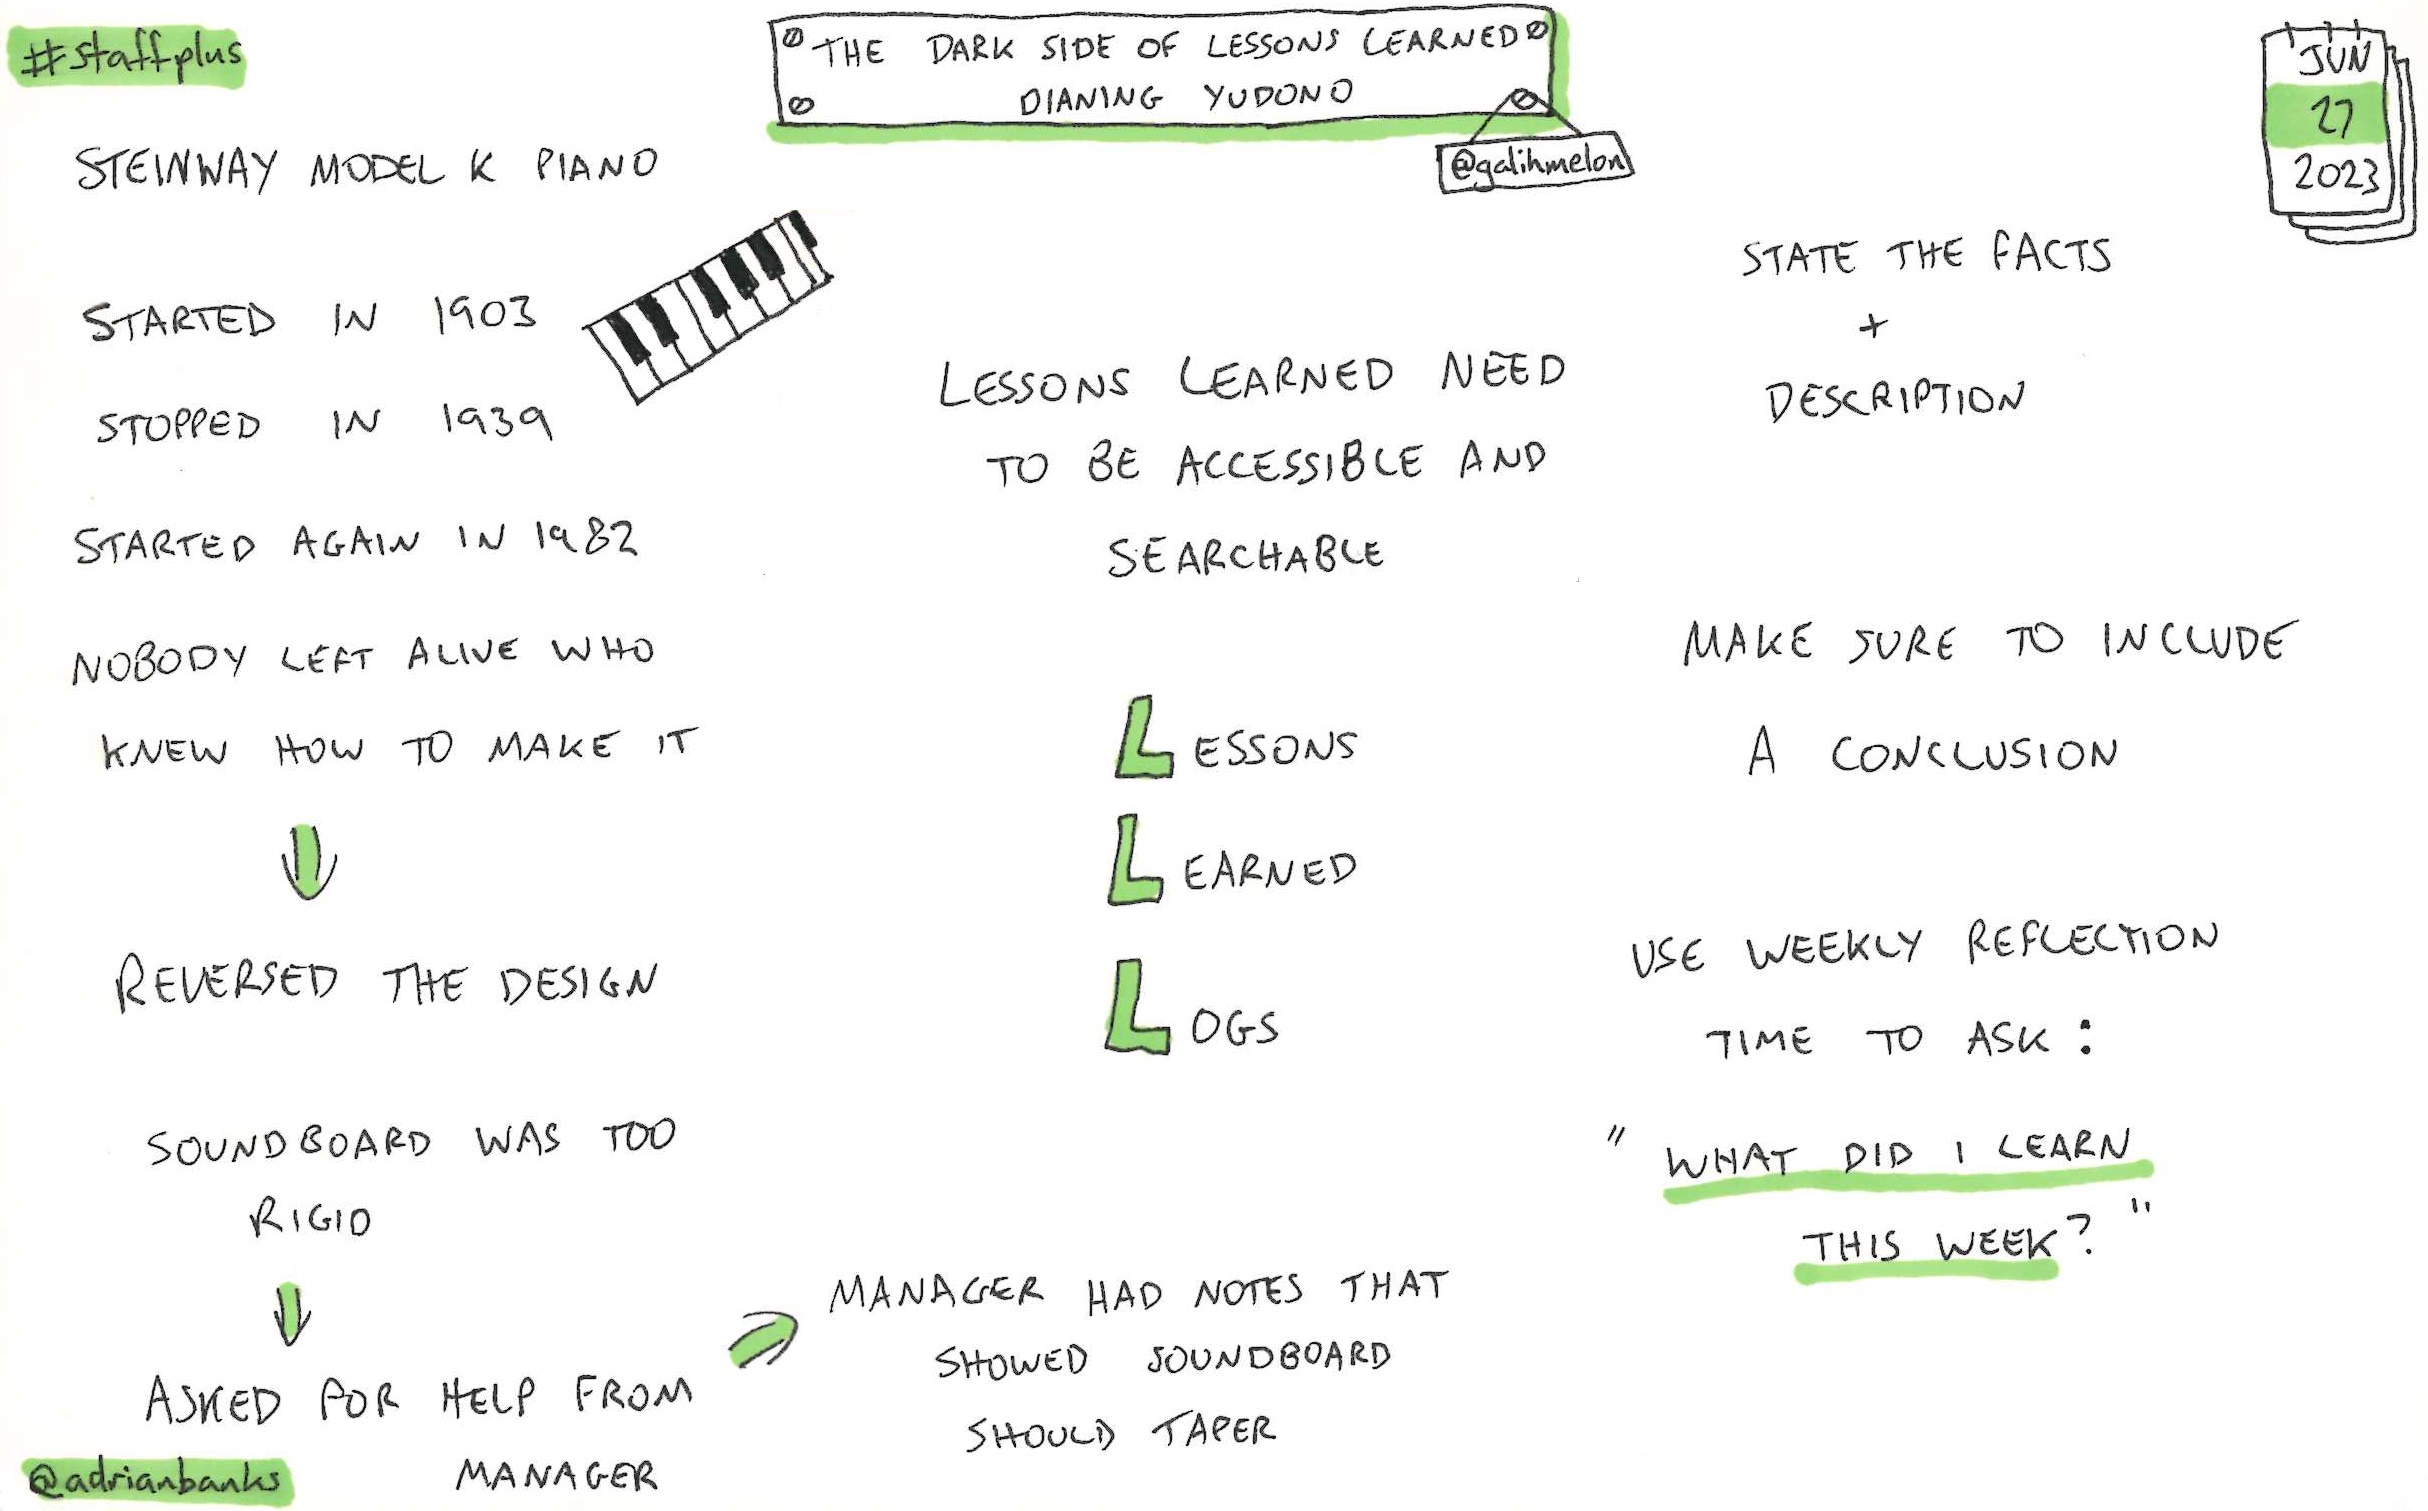 #staffplus
THE DARK SIDE OF LESSONS LEARNED
DIANING YUDONO
@galihmelon
JUN
27
2023
STEINWAY MODEL K PIANO
STARTED IN 1903
STOPPED IN 1939
STARTED AGAIN IN 1982
NOBODY LEFT ALIVE WHO
KNEW HOW TO MAKE IT
REVERSED THE DESIGN
SOUNDBOARD WAS TOO
RIGID
ASKED FOR HELP FROM
MANAGER
MANAGER HAD NOTES THAT
SHOWED SOUNDBOARD
SHOULD TAPER
LESSONS LEARNED NEED
TO BE ACCESSIBLE AND
SEARCHABLE
LESSONS
LEARNED
LOGS
STATE THE FACTS
+
DESCRIPTION
MAKE SURE TO INCLUDE
A CONCLUSION
USE WEEKLY REFLECTION
TIME TO ASK:
"WHAT DID I LEARN
THIS WEEK?"
@adrianbanks